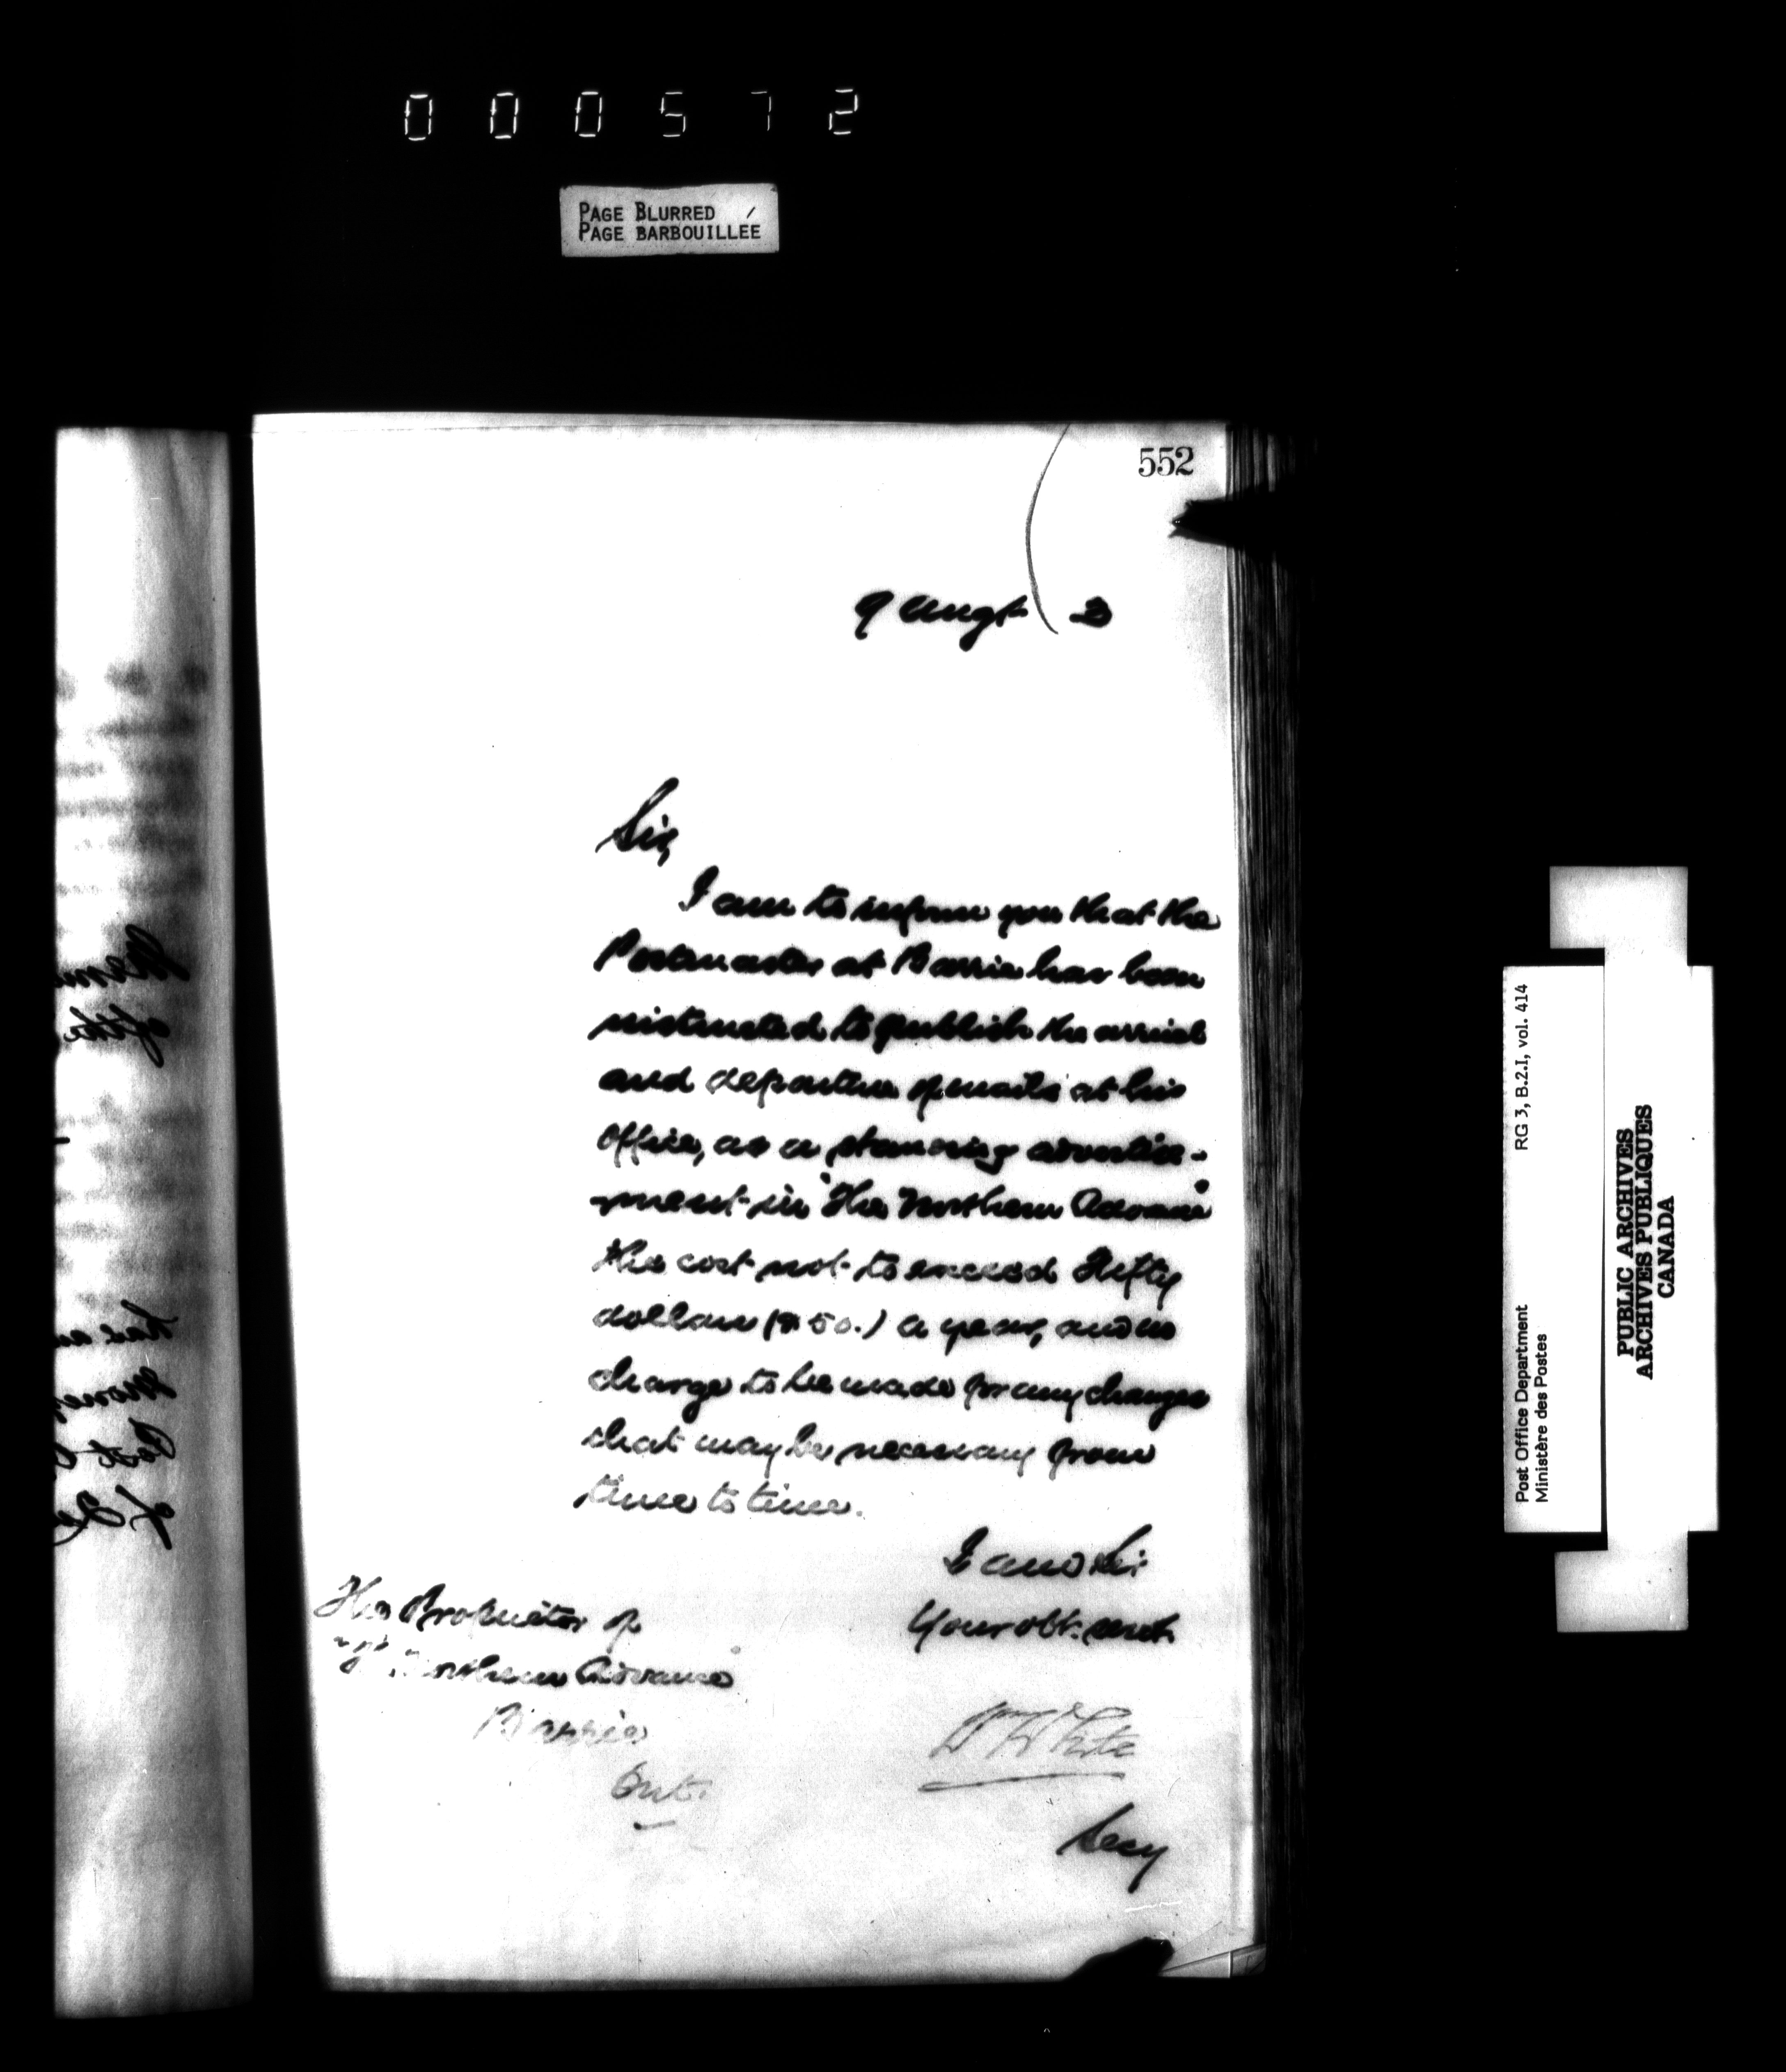 000572
PAGE BLURRED
PAGE BARBOUILLÉE
552
9 Augt 2
Sir,
I am to inform you that the
Postmaster at Barrie has been
instructed to publish the arrival
and departure of mails at his
Office, as a standing advertise-
-ment in "The Northern Advance"
the cost not to exceed Fifty
dollars ($50.) a year, and no
charge to be made for any changes
that may be necessary from
time to time.
I am Sir
Your obt. servt.
W White
Secy
The Proprietor of
"The Northern Advance"
Barrie
Ont.
RG 3, B.2.I, vol. 414
Post Office Department
Ministère des Postes
PUBLIC ARCHIVES
ARCHIVES PUBLIQUES
CANADA